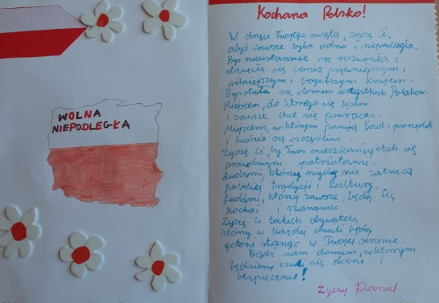 WOLNA
NIEPODLEGŁA
Kochana Polsko!
W dniu Twojego święta, życzę Ci,
abyś zawsze była wolna i niepodległa.
Byś nieustannie się rozwijała i
stawała się coraz piękniejszym,
silniejszym i bogatszym krajem.
Byś stała się domem wszystkich Polaków.
Miejscem, do którego się tęskni
i zawsze chce się powracać.
Miejscem, w którym panują ład i porządek
i ludzie są szczęśliwi.
Życzę Ci, by Twoi mieszkańcy stali się
prawdziwymi patriotami.
Ludźmi, którzy nigdy nie zatracą
polskiej tradycji i kultury.
Ludźmi, którzy zawsze będą Cię
kochać i szanować.
Życzę Ci takich obywateli,
którzy w każdej chwili będą
gotowi stanąć w Twojej obronie.
Bądź nam domem, w którym
będziemy czuć się dobrze i
bezpiecznie!
Życzy